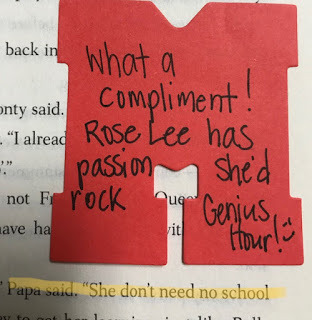 back in
What a
compliment!
onty said.
Rose Lee has
. “I alread
passion she'd
rock Genius
Hour!
not Fr Que
have ha
Papa said. “She don't need no school